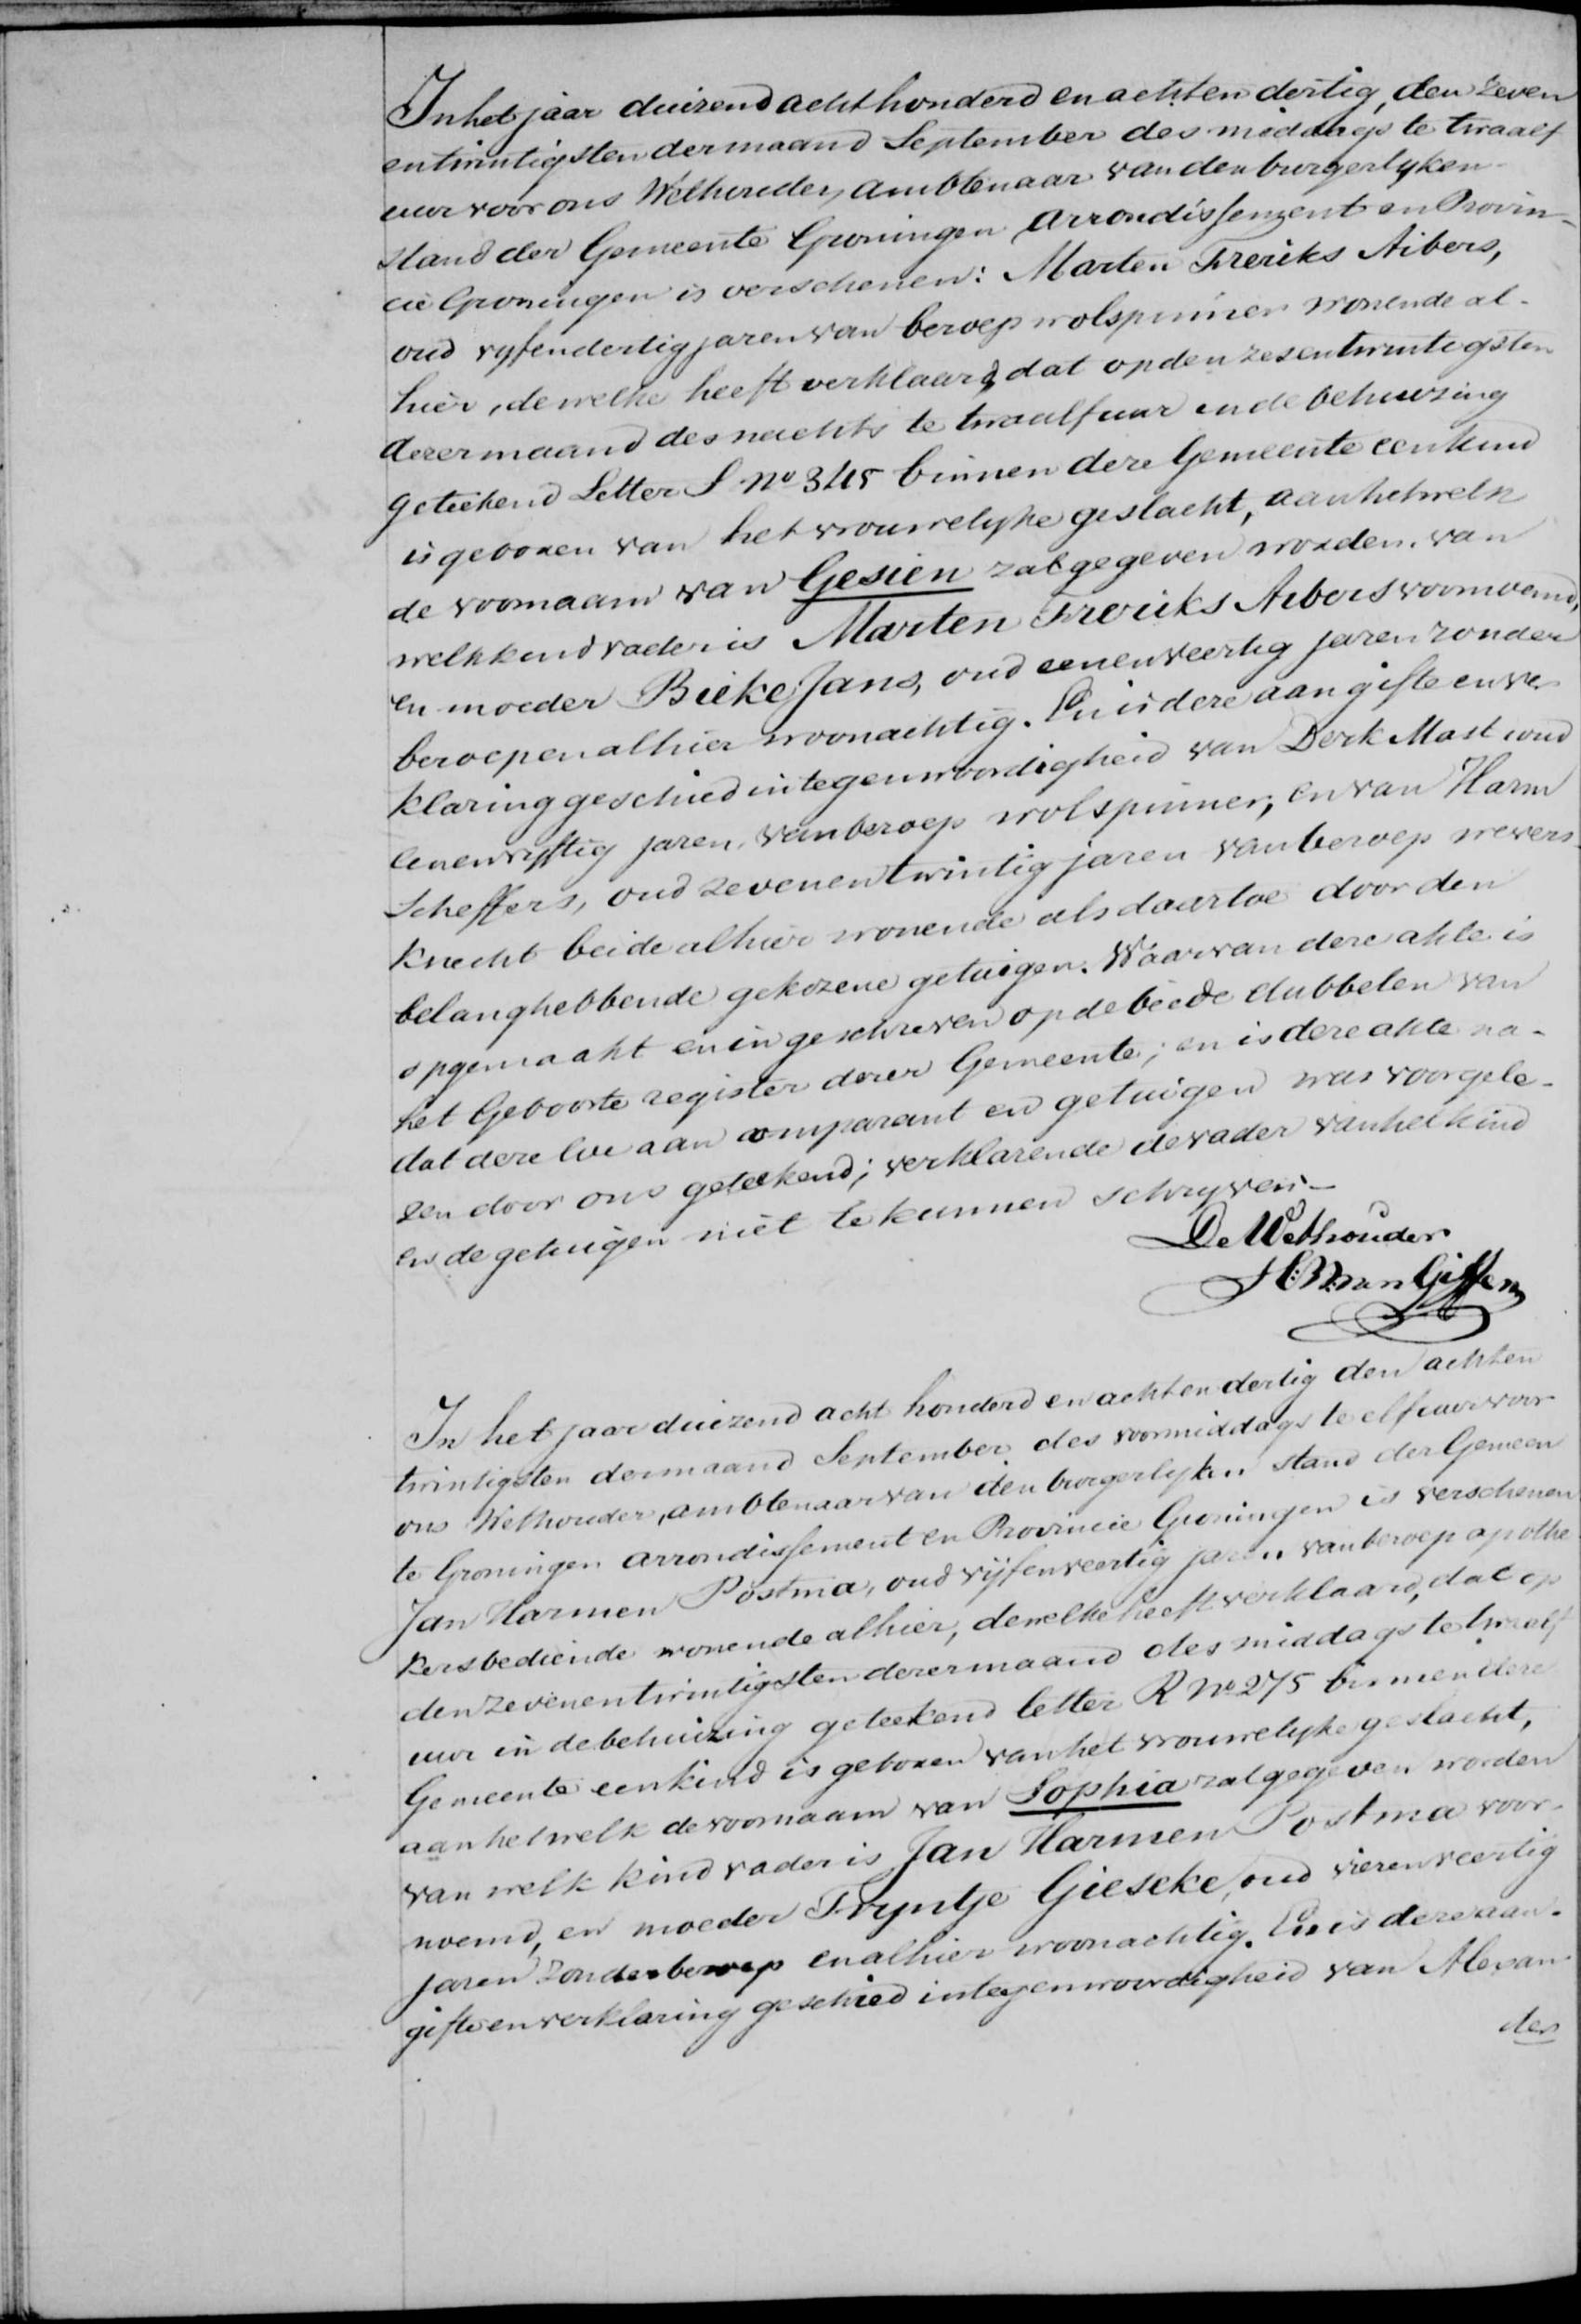 In het jaar duizend acht honderd en acht en dertig, den zeven
en twintigsten der maand September des middags te twaalf
uur voor ons Wethouder, ambtenaar van den burgerlyken
stand der Gemeente Groningen arrondissement en Provin-
cie Groningen is verschenen: Marten Freriks Aibers,
oud vyfendertig jaren van beroep wolspinner wonende al-
hier, dewelke heeft verklaard, dat op den zesentwintigsten
dezer maand des nachts te twaalf uur in de behuizing
geteekend Letter S No 345 binnen deze Gemeente een kind
is geboren van het vrouwelyke geslacht, aan hetwelk
de voornaam van Gesien zal gegeven worden. van
welk kind vader is Marten Freriks Aibers voornoemd,
en moeder Bieke Jans, oud eenenveertig jaren zonder
beroep en alhier woonachtig. En is deze aangifte en ver
klaring geschied in tegenwoordigheid van Derk Mast oud
eenenvyftig jaren, van beroep wolspinner, en van Harm
Scheffers, oud zevenentwintig jaren van beroep wevers-
knecht beide alhier wonende als daartoe door den
belanghebbende gekozene getuigen. Waarvan deze akte is
opgemaakt en ingeschreven op de beide dubbelen van
het Geboorte register dezer Gemeente; en is deze akte na-
dat dezelve aan comparant en getuigen was voorgele-
zen door ons geteekend; verklarende de vader van het kind
en de getuigen niet te kunnen schryven.-
De Wethouder
H:B:van Giffen
In het jaar duizend acht honderd en acht en dertig den achten
twintigsten der maand September des voormiddags te elf uur voor
ons Wethouder, ambtenaar van den burgerlyken stand der Gemeen
te Groningen arrondissement en Provincie Groningen is verschenen
Jan Harmen Postma, oud vyfenveertig jaren van beroep apothe
kersbediende wonende alhier, dewelke heeft verklaard, dat op
den zevenentwintigsten dezer maand des middags te twaalf
uur in de behuizing geteekend letter R No 275 binnen deze
Gemeente een kind is geboren van het vrouwelyke geslacht,
aan hetwelk de voornaam van Sophia zal gegeven worden
van welk kind vader is Jan Harmen Postma voor-
noemd, en moeder Tryntje Gieseke, oud vierenveertig
jaren zonder beroep en alhier woonachtig. En is deze aan-
gifte en verklaring geschied in tegenwoordigheid van Alexan
der